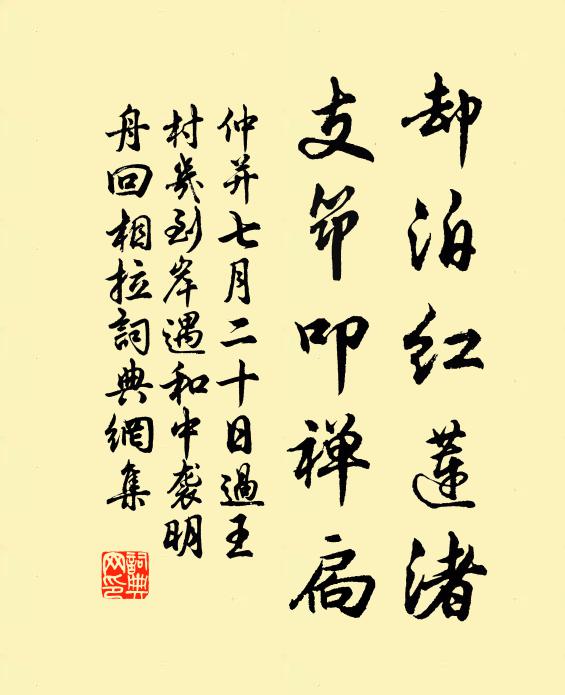 却泊红莲渚
支筇叩禅扃
仲并七月二十日過王
村幾到岸遇和中袭明
舟回相拉詞典網集
詞典网印